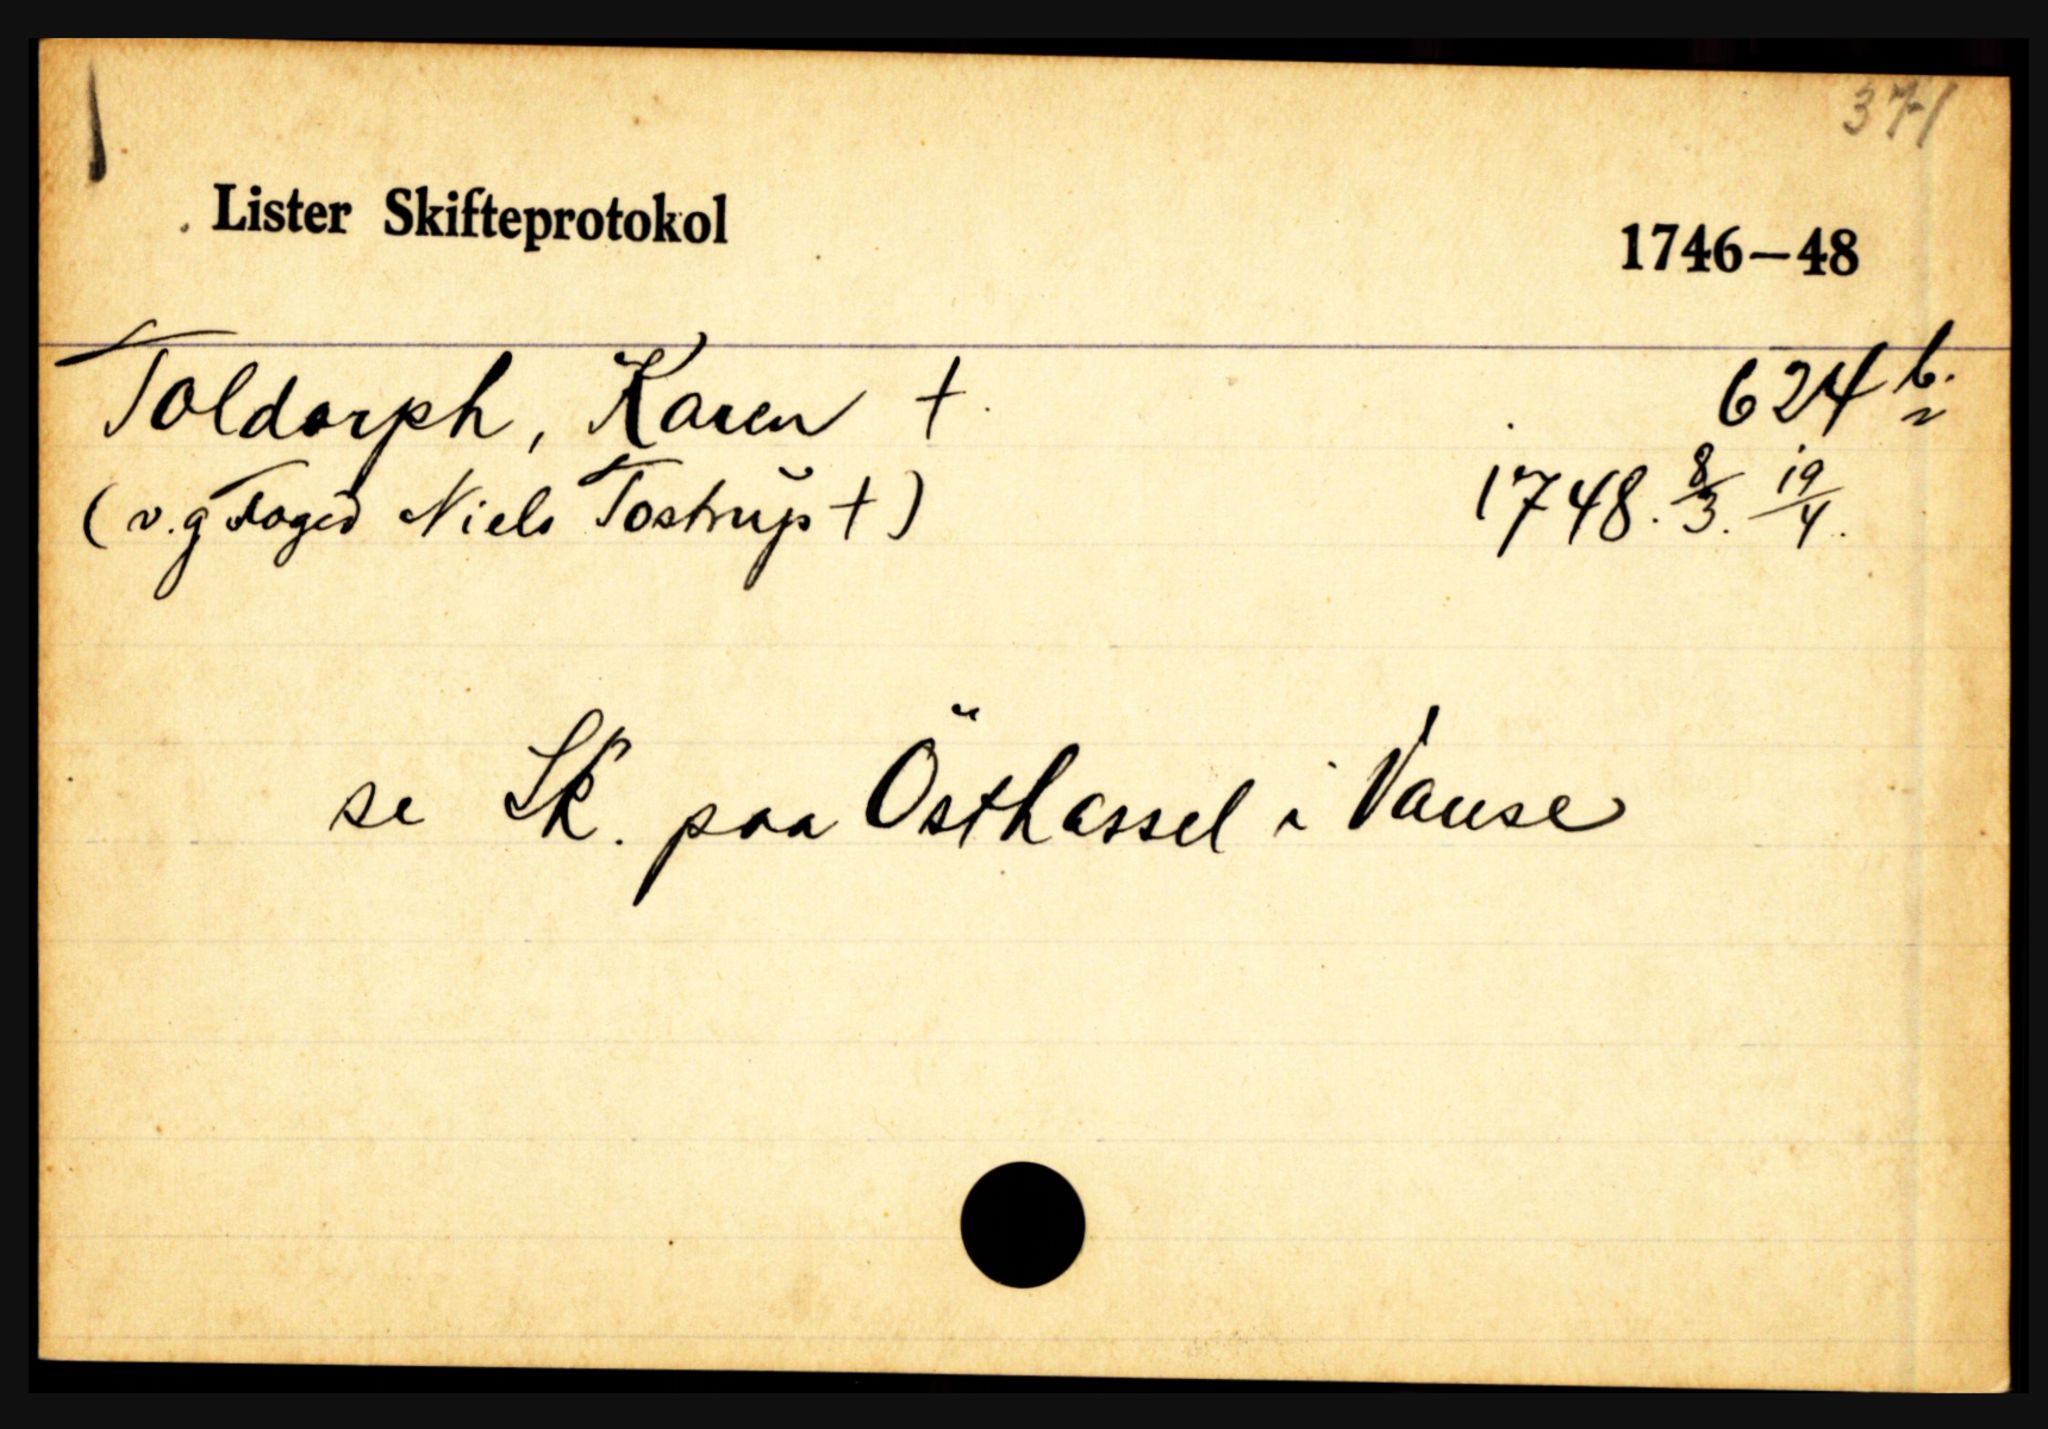 371
Lister Skifteprotokol 1746–48
Toldorph, Karen † 624 b.
(v. g Foged Niels Tostrup †) 1748. 8/3. 19/4.
se Sk. paa Östhassel i Vanse